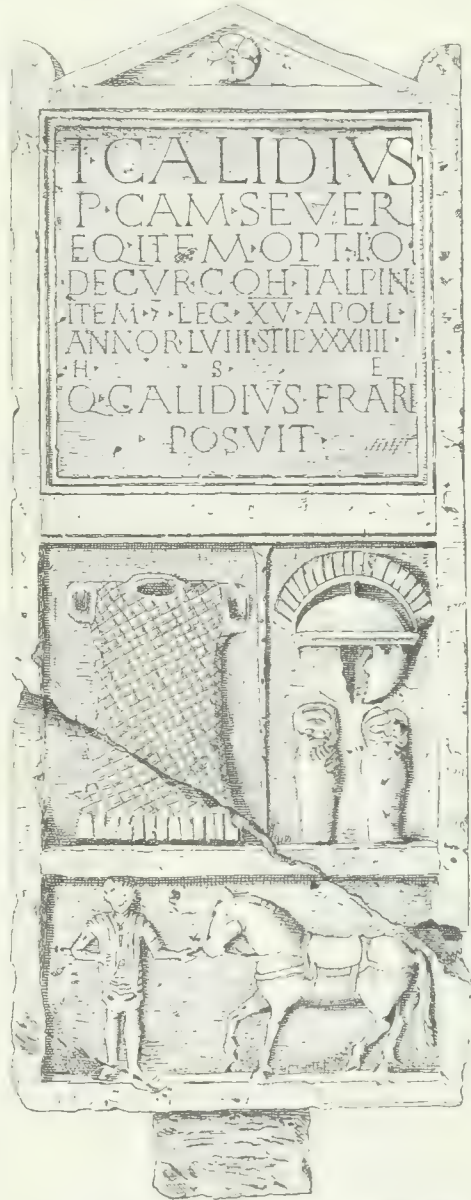 T·CALIDIVS
P·CAM·SEVER
EQ·ITEM·OPTIO
DECVR·COH·I·ALPIN
ITEM·7·LEG·XV·APOLL·
ANNOR·LVIII·STIP·XXXIIII·
·H· S· E
Q·CALIDIVS·FRATRI
·POSVIT·